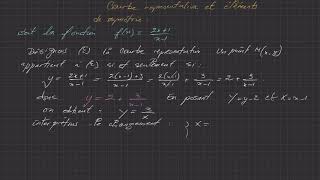 Courbe représentative et éléments
de symétrie
soit la fonction f(x) = (2x+1)/(x-1)
Désignons (C) la courbe représentative un point M(x, y)
appartient à (C) si et seulement si :
y = (2x+1)/(x-1) = (2(x-1)+3)/(x-1) = 2(x-1)/(x-1) + 3/(x-1) = 2 + 3/(x-1)
donc y = 2 + 3/(x-1) En posant Y = y-2 et X = x-1
on obtient : Y = 3/X
interprétons le changement : { X =